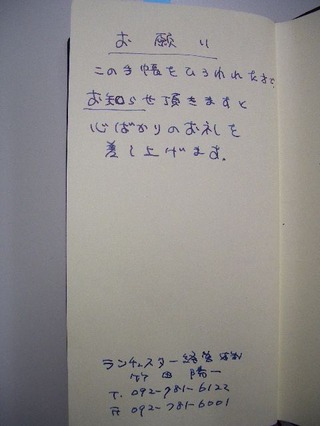 お願い
この手帳をひろわれた方で、
お知らせ頂きますと
心ばかりのお礼を
差し上げます。
ランチェスター経営
竹田陽一
T. 092-781-6122
092-781-6001